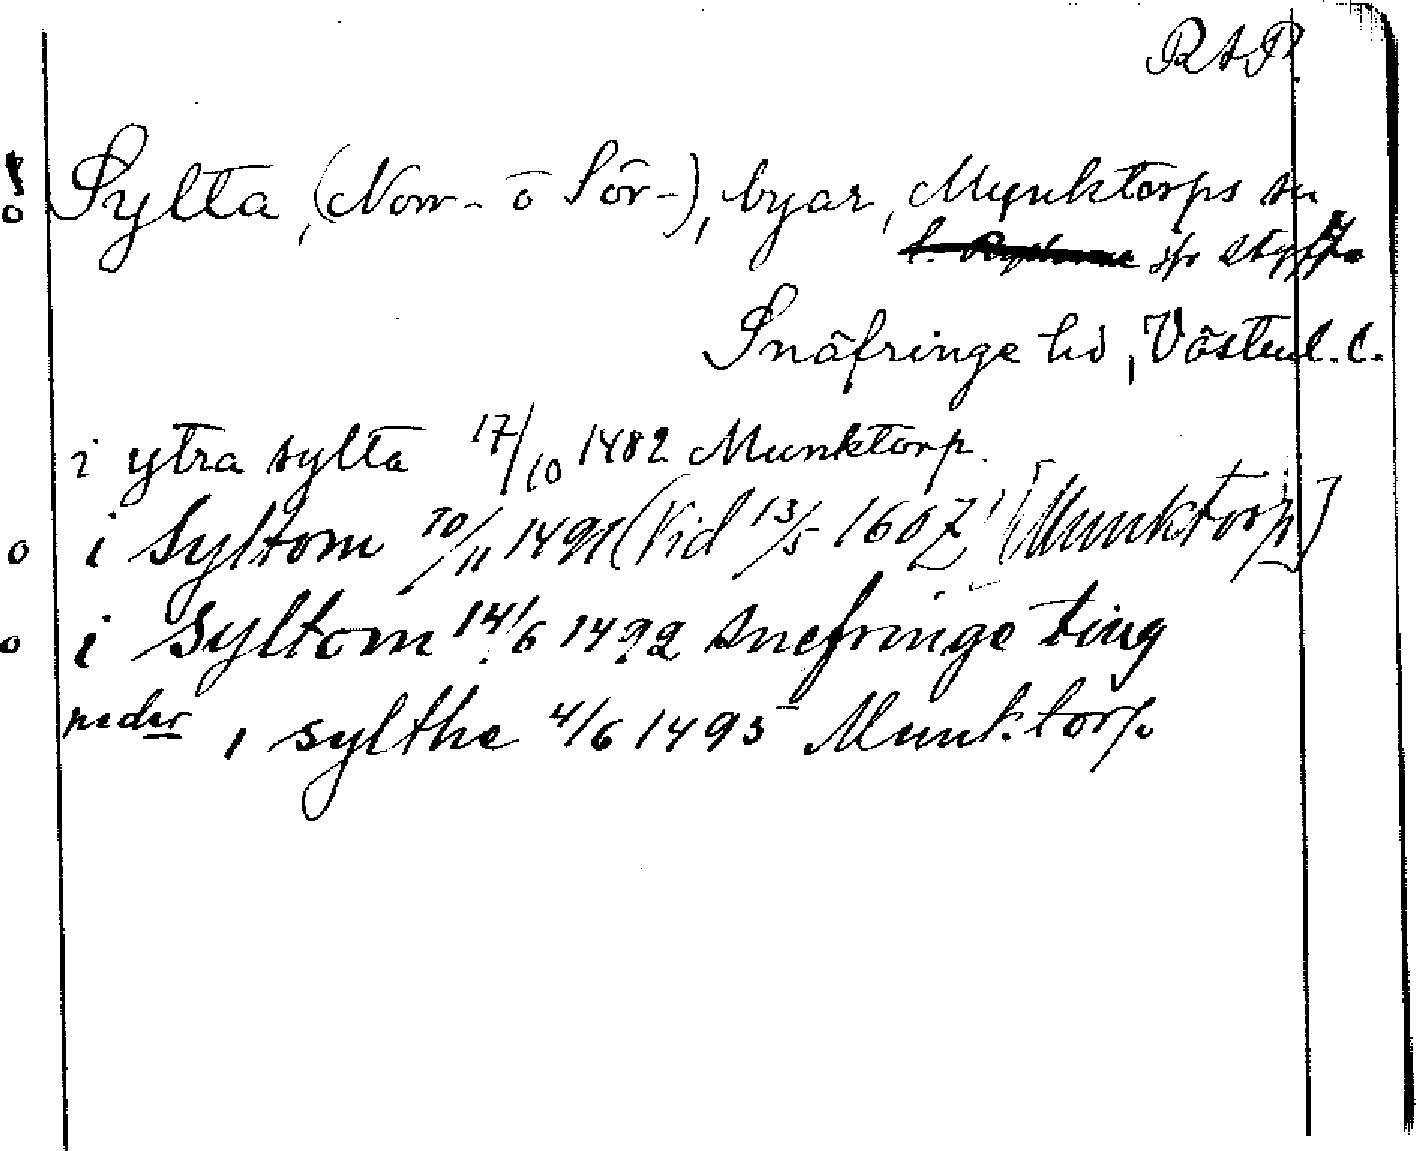 RAP.
Sylta, (Norr- o Sör-), byar, Munktorps sn
Snäfringe hd, Västml. l.
i ytra sylta 17/10 1482 Munktorp.
i Syltom 10/11 1491 (Vid 13/5 1607) [Munktorp]
i Syltom 14/6 1492 snefringe ting
peder i sylthe 4/6 1495 Munktorp